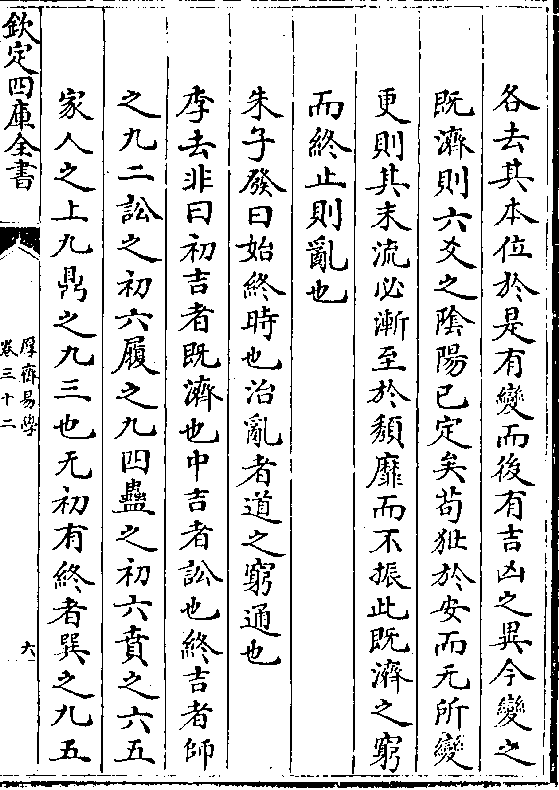 各去其本位於是有變而後有吉凶之異今變之
既濟則六爻之陰陽已定矣苟狃於安而无所變
更則其末流必漸至於頽靡而不振此既濟之窮
而終止則亂也
朱子發曰始終時也治亂者道之窮通也
李去非曰初吉者既濟也中吉者訟也終吉者師
之九二訟之初六履之九四蠱之初六賁之六五
家人之上九鼎之九三也无初有終者巽之九五
欽定四庫全書
厚齋易學
卷三十二
六